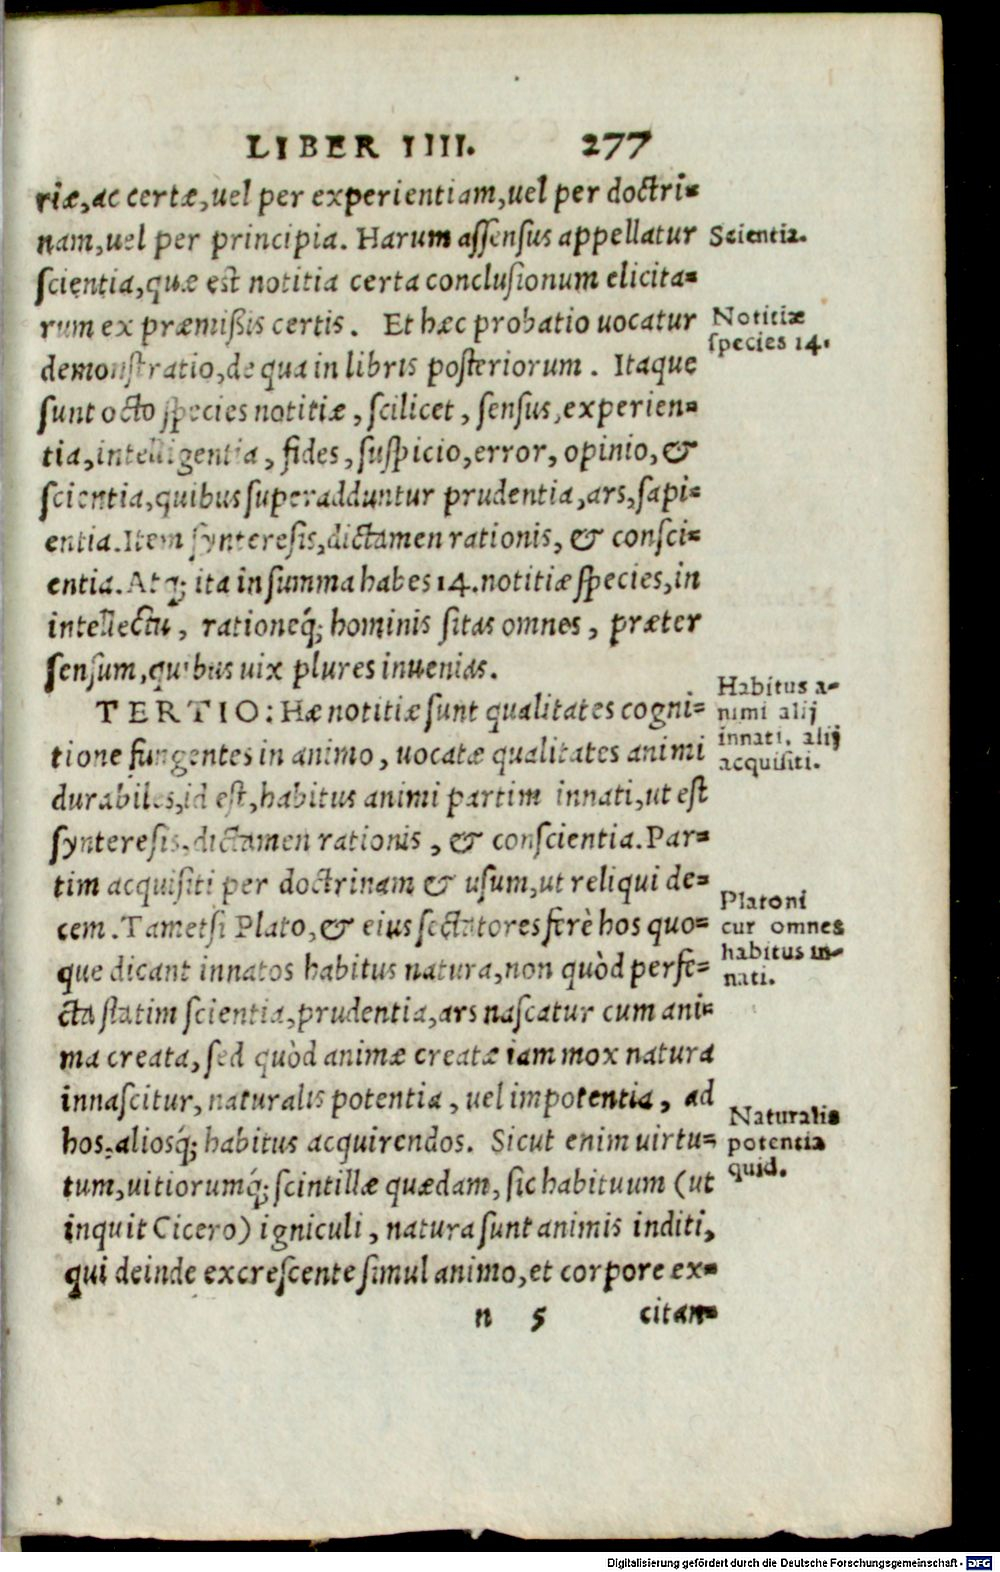 LIBER IIII. 277
riæ, ac certæ, uel per experientiam, uel per doctri-
nam, uel per principia. Harum assensus appellatur
Scientia.
scientia, quæ est notitia certa conclusionum elicita-
rum ex præmißis certis. Et hæc probatio uocatur
Notitiæ
species 14.
demonstratio, de qua in libris posteriorum. Itaque
sunt octo species notitiæ, scilicet, sensus, experien-
tia, intelligentia, fides, suspicio, error, opinio, &
scientia, quibus superadduntur prudentia, ars, sapi-
entia. Item synteresis, dictamen rationis, & consci-
entia. Atq; ita in summa habes 14. notitiæ species, in
intellectu, rationeq́; hominis sitas omnes, præter
sensum, quibus uix plures inuenias.
TERTIO: Hæ notitiæ sunt qualitates cogni-
Habitus a-
nimi alij
innati, alij
acquisiti.
tione fungentes in animo, uocatæ qualitates animi
durabiles, id est, habitus animi partim innati, ut est
synteresis, dictamen rationis, & conscientia. Par-
tim acquisiti per doctrinam & usum, ut reliqui de-
cem. Tametsi Plato, & eius sectatores ferè hos quo-
Platoni
cur omnes
habitus in-
nati.
que dicant innatos habitus natura, non quòd perfe-
cta statim scientia, prudentia, ars nascatur cum ani-
ma creata, sed quòd animæ creatæ iam mox natura
innascitur, naturalis potentia, uel impotentia, ad
hos, aliosq́; habitus acquirendos. Sicut enim uirtu-
Naturalis
potentia
quid.
tum, uitiorumq́; scintillæ quædam, sic habituum (ut
inquit Cicero) igniculi, natura sunt animis inditi,
qui deinde excrescente simul animo, et corpore ex-
n 5 citan-
Digitalisierung gefördert durch die Deutsche Forschungsgemeinschaft - DFG